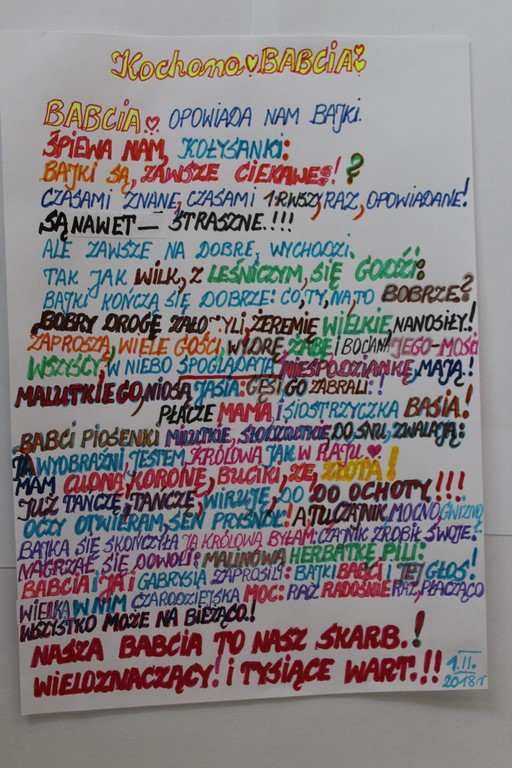 Kochana BABCIA!
BABCIA OPOWIADA NAM BAJKI.
ŚPIEWA NAM, KOŁYSANKI:
BAJKI SĄ, ZAWSZE CIEKAWE! ?
CZASAMI ZNANE, CZASAMI 1-RWSZY RAZ, OPOWIADANE!
SĄ NAWET – STRASZNE.!!!
ALE ZAWSZE NA DOBRE, WYCHODZI
TAK JAK WILK, Z LEŚNICZYM, SIĘ GODZI:
BAJKI KOŃCZĄ SIĘ DOBRZE: CO, TY, NA TO BOBRZE?
BOBRY DROGĘ ZAŁOŻYLI, ŻEREMIĘ WIELKIE, NANOSIŁY.!
ZAPROSZĄ, WIELE GOŚCI, WYDRĘ, ŻABĘ I BOCIANA JEGO-MOŚCI
WSZYSCY, W NIEBO SPOGLĄDATĄ NIESPODZIANKĘ, MAJĄ!
MALUTKIEGO, NIOSĄ JASIA: GĘSI GO ZABRALI:!
PŁACZE MAMA I SIOSTRZYCZKA BASIA!
BABCI PIOSENKI MILUTKIE, SŁODZIUTKIE, DO SNU, ZWALAJĄ:
WYOBRAŹNI, JESTEM, KRÓLOWĄ JAK W RAJU.
MAM CUDNĄ, KORONĘ, BUCIKI, ZE, ZŁOTA!
JUŻ TAŃCZĘ, TAŃCZĘ, WIRUJĘ, DO DO OCHOTY!!!
OCZY OTWIERAM, SEN PRYSNĄŁ! A TU, CZAJNIK, MOCNO,
BAJKA SIĘ SKOŃCZYŁA JA KRÓLOWĄ BYŁAM: CZAJNIK ZROBIŁ SWOJE!
NAGRZAŁ SIĘ DOWOLI: MALINOWĄ HERBATKĘ PILI:
BABCIA I JA I GABRYSIA ZAPROSILI: BAJKI BABCI I JEJ GŁOS!
WIELKA W NIM CZARODZIEJSKA MOC: RAZ RADOŚNIE RAZ, PŁACZĄCO
WSZYSTKO MOŻE NA BIEŻĄCO.!
NASZA BABCIA TO NASZ SKARB.!
WIELOZNACZĄCY! I TYSIĄCE WART.!!
1.II.
2018r